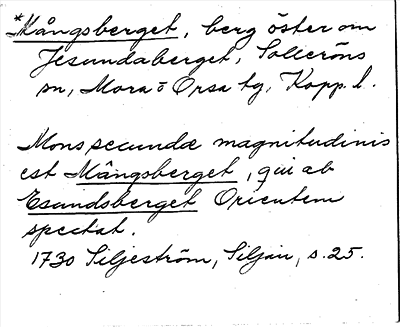 *Mångsberget, berg öster om
Jesundaberget, Solleröns
sn, Mora o Orsa tg, Kopp. l.
Mons secundæ magnitudinis
est Mångsberget, qui ab
Esundsberget Orientem
spectat.
1730 Siljeström, Siljan, s. 25.